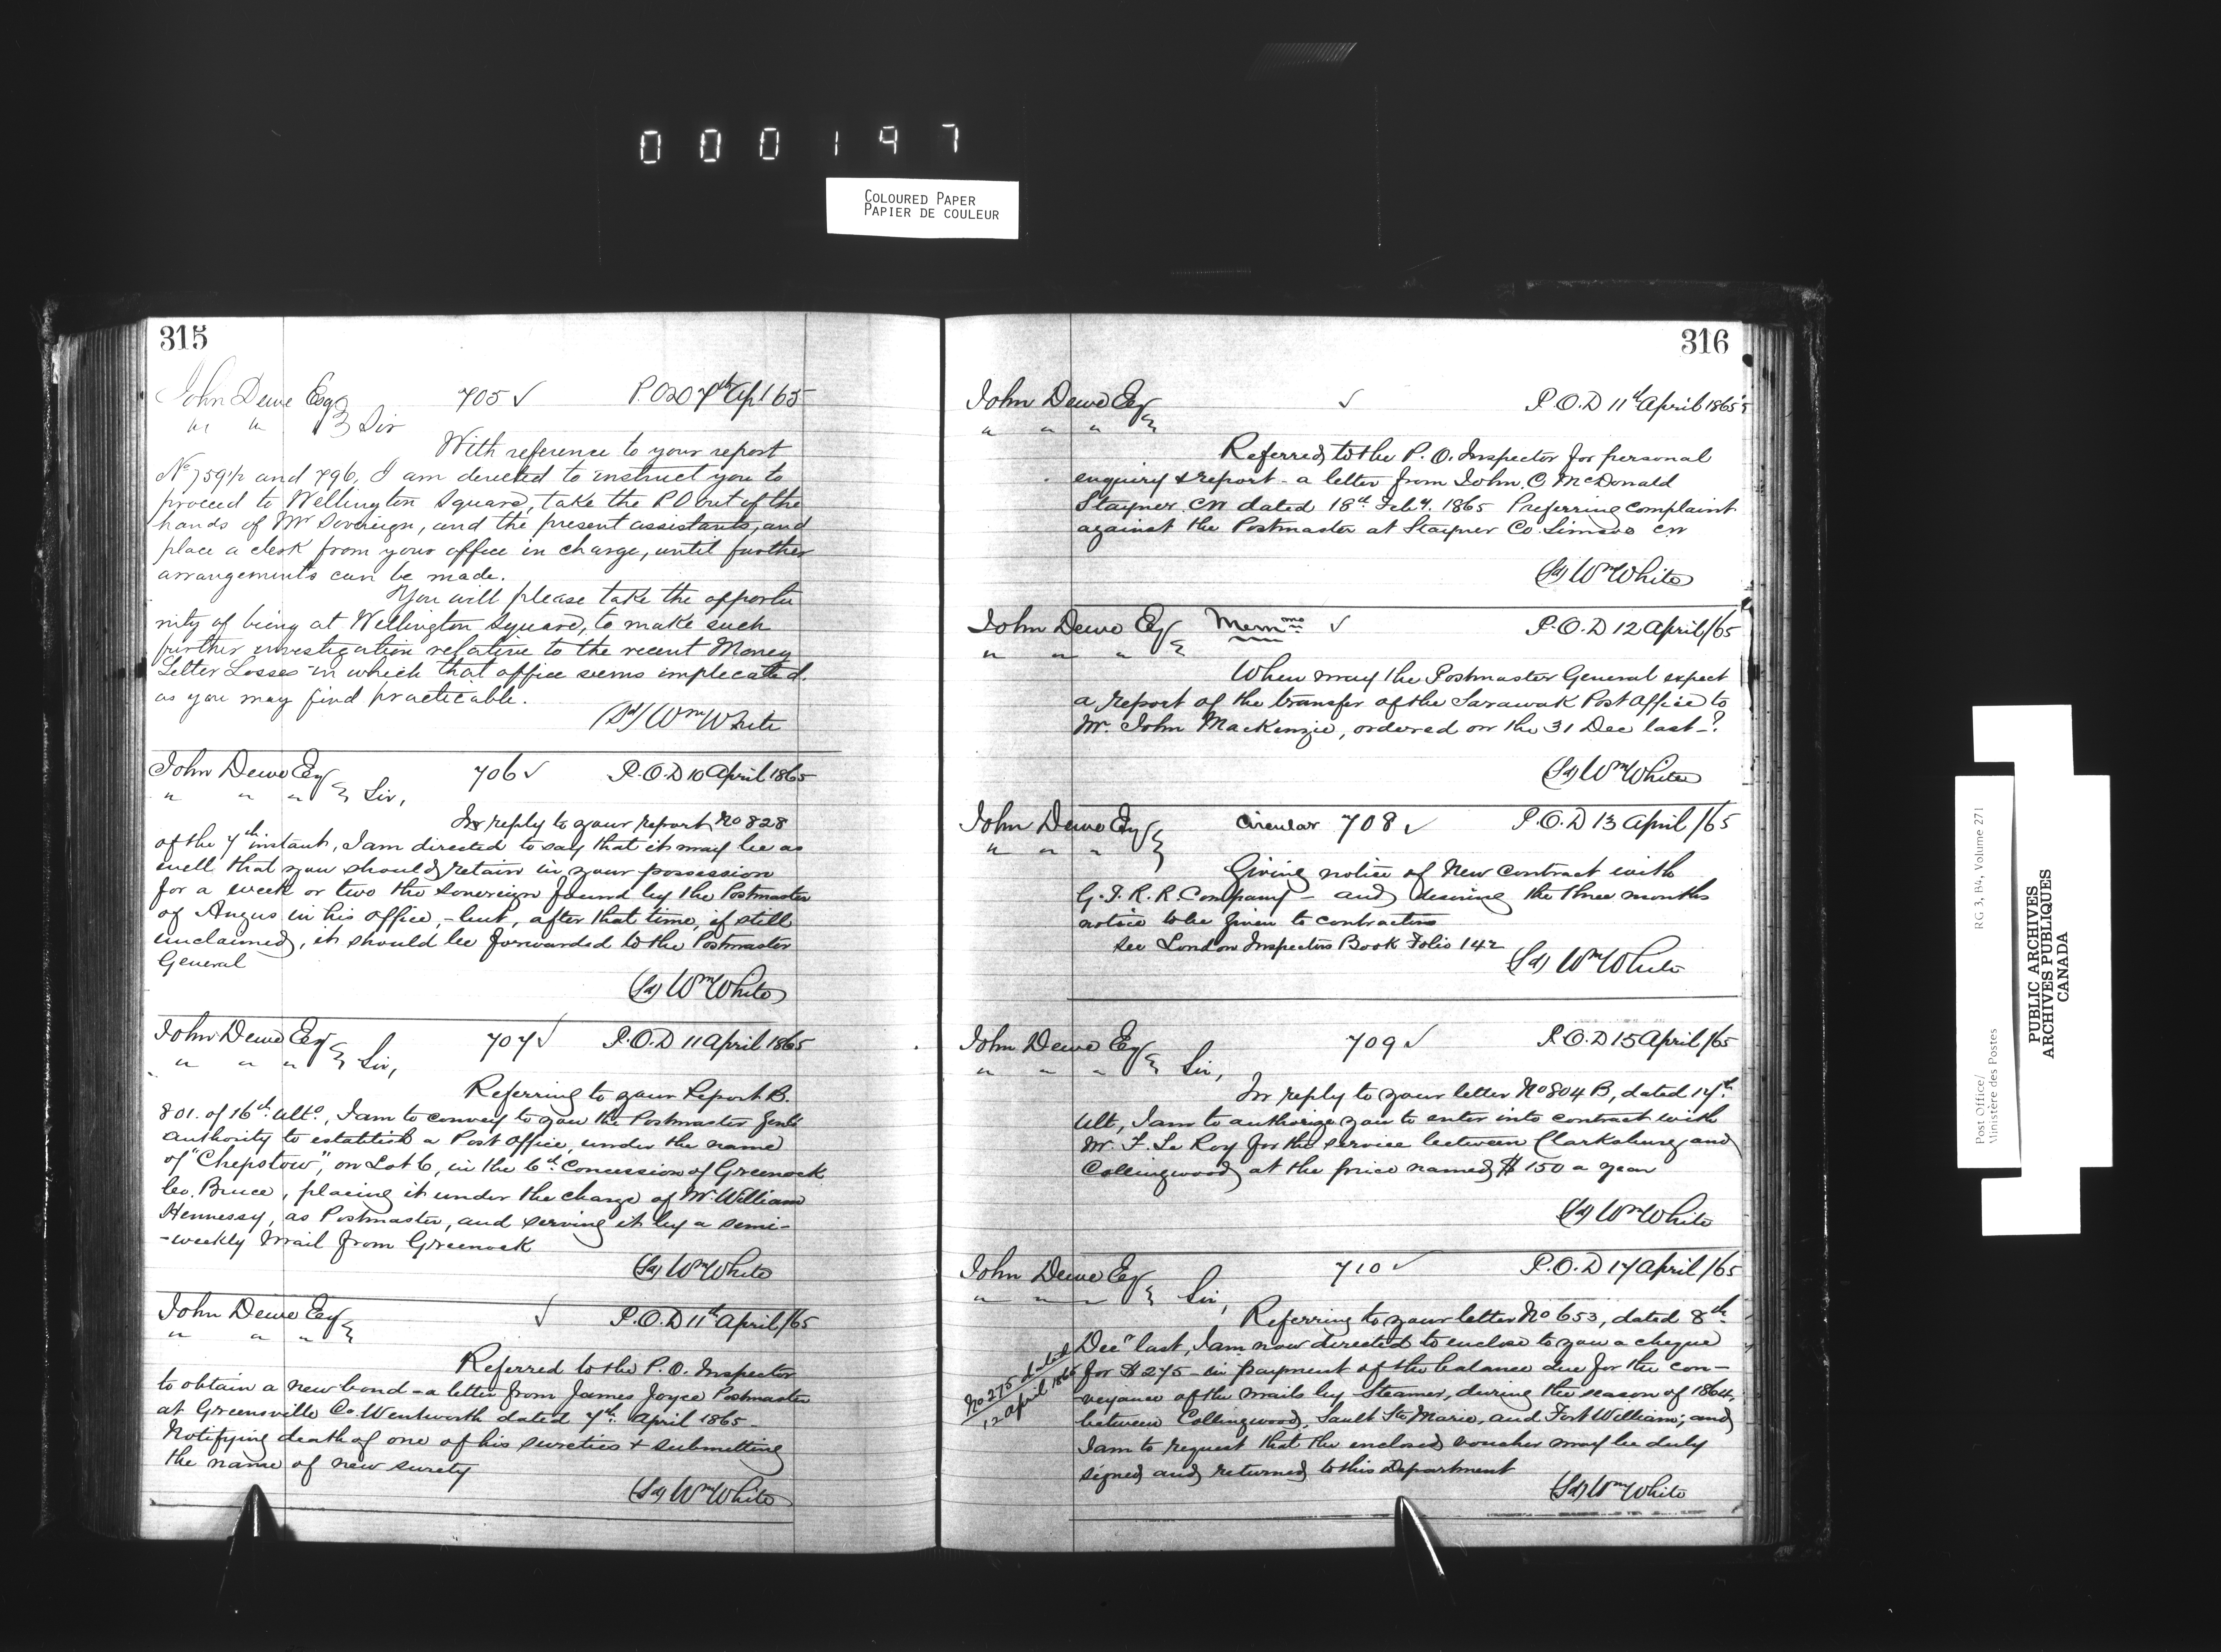 000197
COLOURED PAPER
PAPIER DE COULEUR
315
John Dewe Esq 705 ✓ P.O.D 7th Apl 65
" " " Sir
With reference to your report
No 759½ and 796, I am directed to instruct you to
proceed to Wellington Square, take the P.O out of the
hands of Mr Sovereign, and the present assistants, and
place a clerk from your office in charge, until further
arrangements can be made.
You will please take the opportu
nity of being at Wellington Square, to make such
further investigation relative to the recent Money
Letter Losses in which that office seems implicated.
as you may find practicable.
(Sd) Wm White
John Dewe Esq 706 ✓ P.O.D 10 April 1865
" " " Sir,
In reply to your report No 828
of the 7th instant, I am directed to say that it may be as
well that you should retain in your possession
for a week or two the sovereign found by the Postmaster
of Angus in his office, - but, after that time, if still
unclaimed, it should be forwarded to the Postmaster
General
(Sd) Wm White
John Dewe Esq 707 ✓ P.O.D 11 April 1865
" " " Sir,
Referring to your Report B.
801. of 16th ulto, I am to convey to you the Postmaster Genls
authority to establish a Post Office, under the name
of "Chepstow", on Lot 6, in the 6th Concession of Greenock
Co. Bruce, placing it under the charge of Mr William
Hennessy, as Postmaster, and serving it by a semi-
-weekly Mail from Greenock
(Sd) Wm White
John Dewe Esq ✓ P.O.D 11th April/65
" " "
Referred to the P.O. Inspector
to obtain a new bond - a letter from James Joyce Postmaster
at Greensville Co Wentworth dated 7th April 1865 -
Notifying death of one of his sureties + submitting
the name of new surety
(Sd) Wm White
316
John Dewe Esq ✓ P.O.D 11th April 1865
" " "
Referred to the P.O. Inspector for personal
enquiry & report - a letter from John C. McDonald
Stayner CW dated 18th Feby. 1865 Preferring complaint
against the Postmaster at Stayner Co. Simcoe CW
(Sd) Wm White
John Dewe Esq Memmo ✓ P.O.D 12 April/65
" " "
When may the Postmaster General expect
a report of the transfer of the Sarawak Post Office to
Mr. John MacKenzie, ordered on the 31 Dec last -?
(Sd) Wm White
John Dewe Esq Circular 708 ✓ P.O.D 13 April/65
" " "
Giving notice of New Contract with
G.T.R.R. Company - and desiring the three months
notice to be given to contractors
see London Inspectors Book Folio 142
(Sd) Wm White
John Dewe Esq 709 ✓ P.O.D 15 April/65
" " " Sir,
In reply to your letter No 804 B, dated 17th
Ult, I am to authorize you to enter into contract with
Mr. F. Le Roy for the service between Clarksburg and
Collingwood at the price named $150 a year
(Sd) Wm White
John Dewe Esq 710 ✓ P.O.D 17 April/65
" " " Sir,
Referring to your letter No 653, dated 8th
Decr last, I am now directed to enclose to you a cheque
No 275 dated
12 April 1865
for $275 - in payment of the balance due for the con-
veyance of the mails by Steamer, during the season of 1864,
between Collingwood, Sault Ste Marie, and Fort William; and
I am to request that the enclosed voucher may be duly
signed and returned to this Department
(Sd) Wm White
Post Office/ RG 3, B4, Volume 271
Ministère des Postes
PUBLIC ARCHIVES
ARCHIVES PUBLIQUES
CANADA